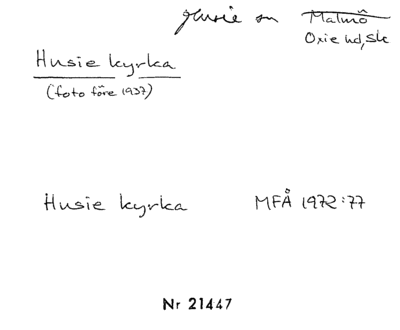 Husie sn Malmö
Oxie hd, Sk
Husie kyrka
(foto före 1937)
Husie kyrka MFÅ 1972:77
Nr 21447